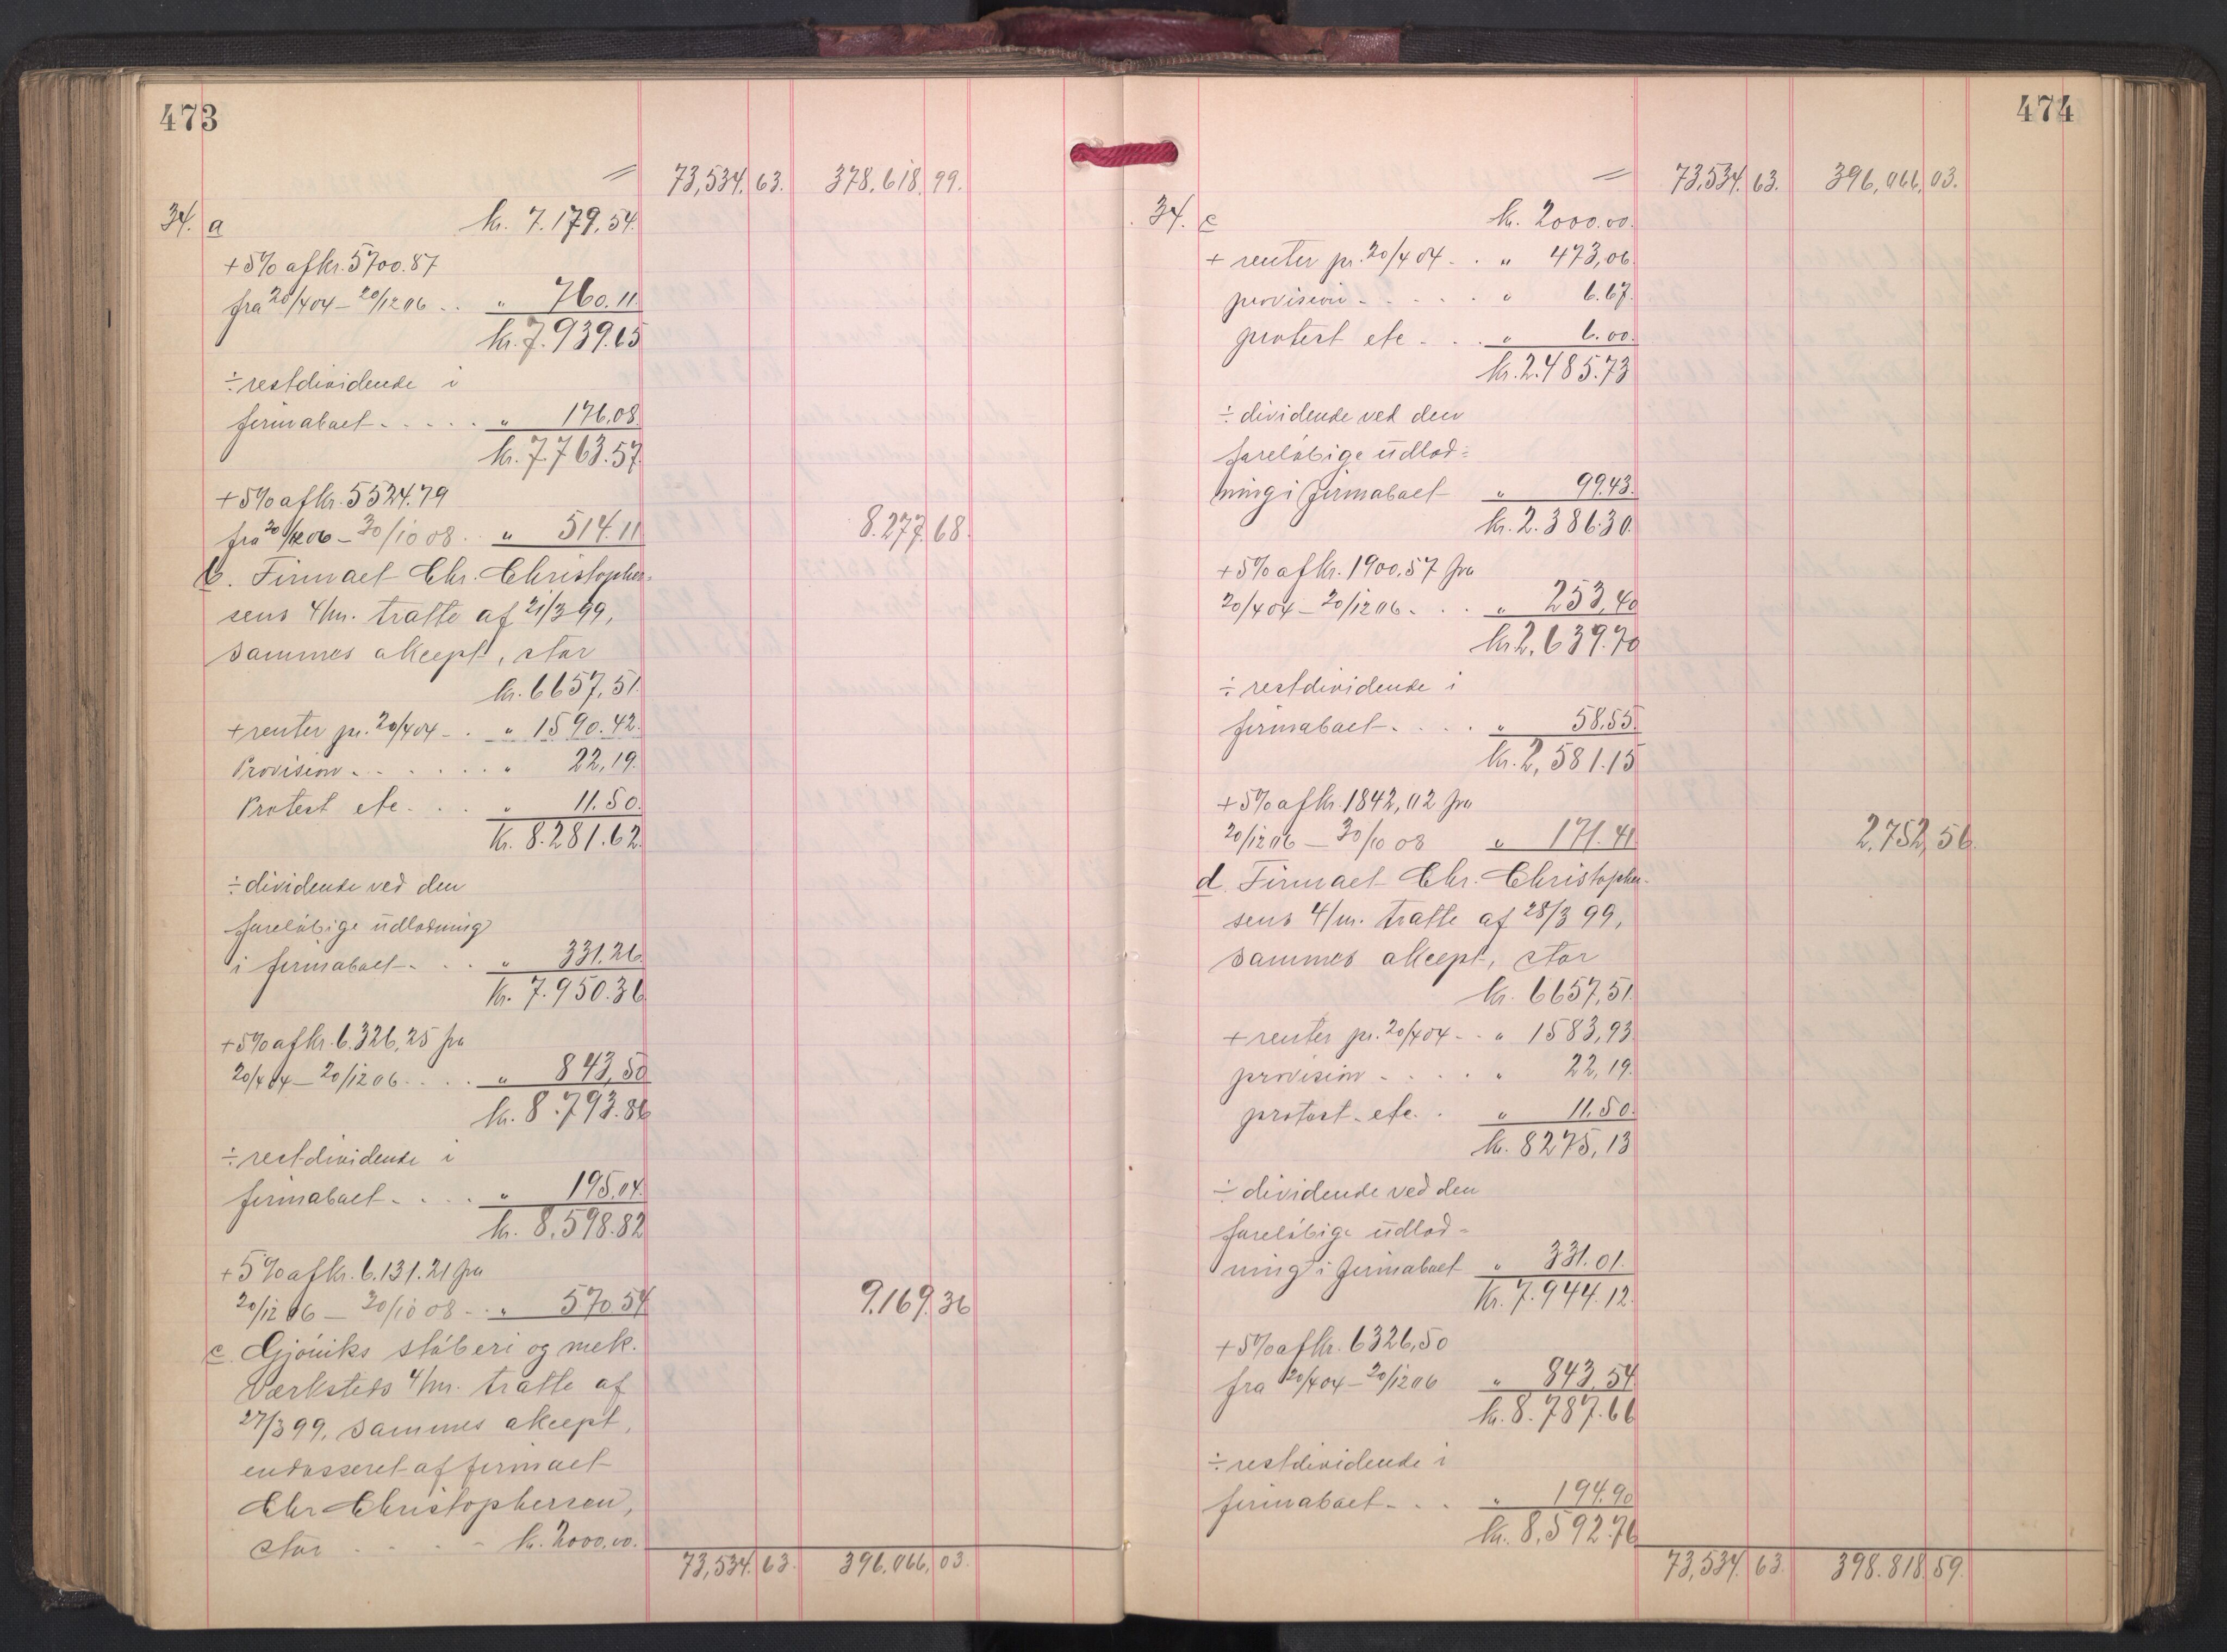 473
= 73,534.63. 378.618.99.
34. a kr. 7.179,54.
+ 5% af kr. 5700.87
fra 20/4 04 – 20/12 06 . . " 760.11
kr. 7.939.65
÷ restdividende i
firmaboet . . . . . " 176.08.
kr. 7.763.57.
+ 5% af kr. 5524.79
fra 20/12 06 – 30/10 08 . . " 514.11 8.277.68.
b. Firmaet Chr. Christopher-
sens 4/m. tratte af 21/3 99,
sammes akcept, stor
kr. 6657,51.
+ renter pr. 20/4 04 – . " 1590.42.
Provision . . . . . . . " 22,19.
Protest etc. . . " 11.50.
kr. 8.281.62.
÷ dividende ved den
foreløbige udlodning
i firmaboet – . . . " 331.26.
kr. 7.950.36
+ 5% af kr. 6.326,25 fra
20/4 04 – 20/12 06 . . . . " 843,50
kr. 8.793.86
÷ restdividende i
firmaboet – . . . . " 195.04.
kr. 8.598.82
+ 5% af kr. 6.131.21 fra
20/12 06 – 30/10 08 – . . " 570.54 9.169.36
c. Gjöviks stöberi og mek.
Værksteds 4/m. tratte af
27/3 99, sammes akcept,
endosseret af firmaet
Chr. Christophersen,
stor . . . . – kr. 2000.00.
73,534.63. 396.066,03.
474
= 73,534.63. 396,066,03.
34. c kr. 2000.00.
+ renter pr. 20/4 04 – . " 473,06.
provision – . . . . . " 6.67.
protest etc – . . . " 6.00.
kr. 2.485.73
÷ dividende ved den
foreløbige udlod-
ning i firmaboet " 99.43.
kr. 2.386.30.
+ 5% af kr. 1900,57 fra
20/4 04 – 20/12 06 – . . " 253,40
kr. 2.639.70
÷ restdividende i
firmaboet – . . . . " 58.55.
kr. 2,581.15
+ 5% af kr. 1842,02 fra
20/12 06 – 30/10 08 " 171.41 2.752,56.
d. Firmaet Chr. Christopher-
sens 4/m. tratte af 28/3 99,
sammes akcept, stor
kr. 6657,51.
+ renter pr. 20/4 04 – . . " 1583,93.
provision – . . . . " 22,19.
protest etc. . " 11.50.
kr. 8275,13
÷ dividende ved den
foreløbige udlod-
ning i firmaboet " 331.01.
kr. 7.944.12.
+ 5% af kr. 6326,50
fra 20/4 04 – 20/12 06 " 843,54
kr. 8.787.66
÷ restdividende i
firmaboet – . . . " 194.90
kr. 8.592.76
73,534.63. 398.818.59.